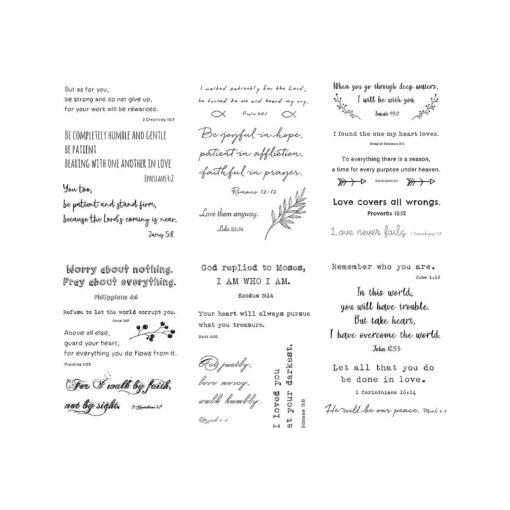 But as for you,
be strong and do not give up,
for your work will be rewarded.
2 Chronicles 15:7
BE COMPLETELY HUMBLE AND GENTLE
BE PATIENT
BEARING WITH ONE ANOTHER IN LOVE
EPHESIANS 4:2
You too,
be patient and stand firm,
because the Lord's coming is near.
James 5:8
I waited patiently for the Lord;
he turned to me and heard my cry.
Psalm 40:1
Be joyful in hope,
patient in affliction,
faithful in prayer.
Romans 12:12
Love them anyway.
Luke 23:34
When you go through deep waters,
I will be with you.
Isaiah 43:2
I found the one my heart loves.
Song of Solomon 3:4
To everything there is a season,
a time for every purpose under heaven.
Ecclesiastes 3:1
Love covers all wrongs.
Proverbs 10:12
Love never fails. 1 Corinthians 13:8
Worry about nothing.
Pray about everything.
Philippians 4:6
Refuse to let the world corrupt you.
James 1:27
Above all else,
guard your heart,
for everything you do flows from it.
Proverbs 4:23
For I walk by faith,
not by sight. 2 Corinthians 5:7
God replied to Moses,
I AM WHO I AM.
Exodus 3:14
Your heart will always pursue
what you treasure.
Act justly,
love mercy,
walk humbly.
I loved you
at your darkest.
Romans 5:8
Remember who you are.
John 1:12
In this world,
you will have trouble.
But take heart,
I have overcome the world.
John 16:33
Let all that you do
be done in love.
1 Corinthians 16:14
He will be our peace.